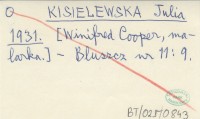 O KISIELEWSKA Julia
1931. [Winifred Cooper, ma-
larka.] - Bluszcz nr 11: 9.
BT/0287/0843